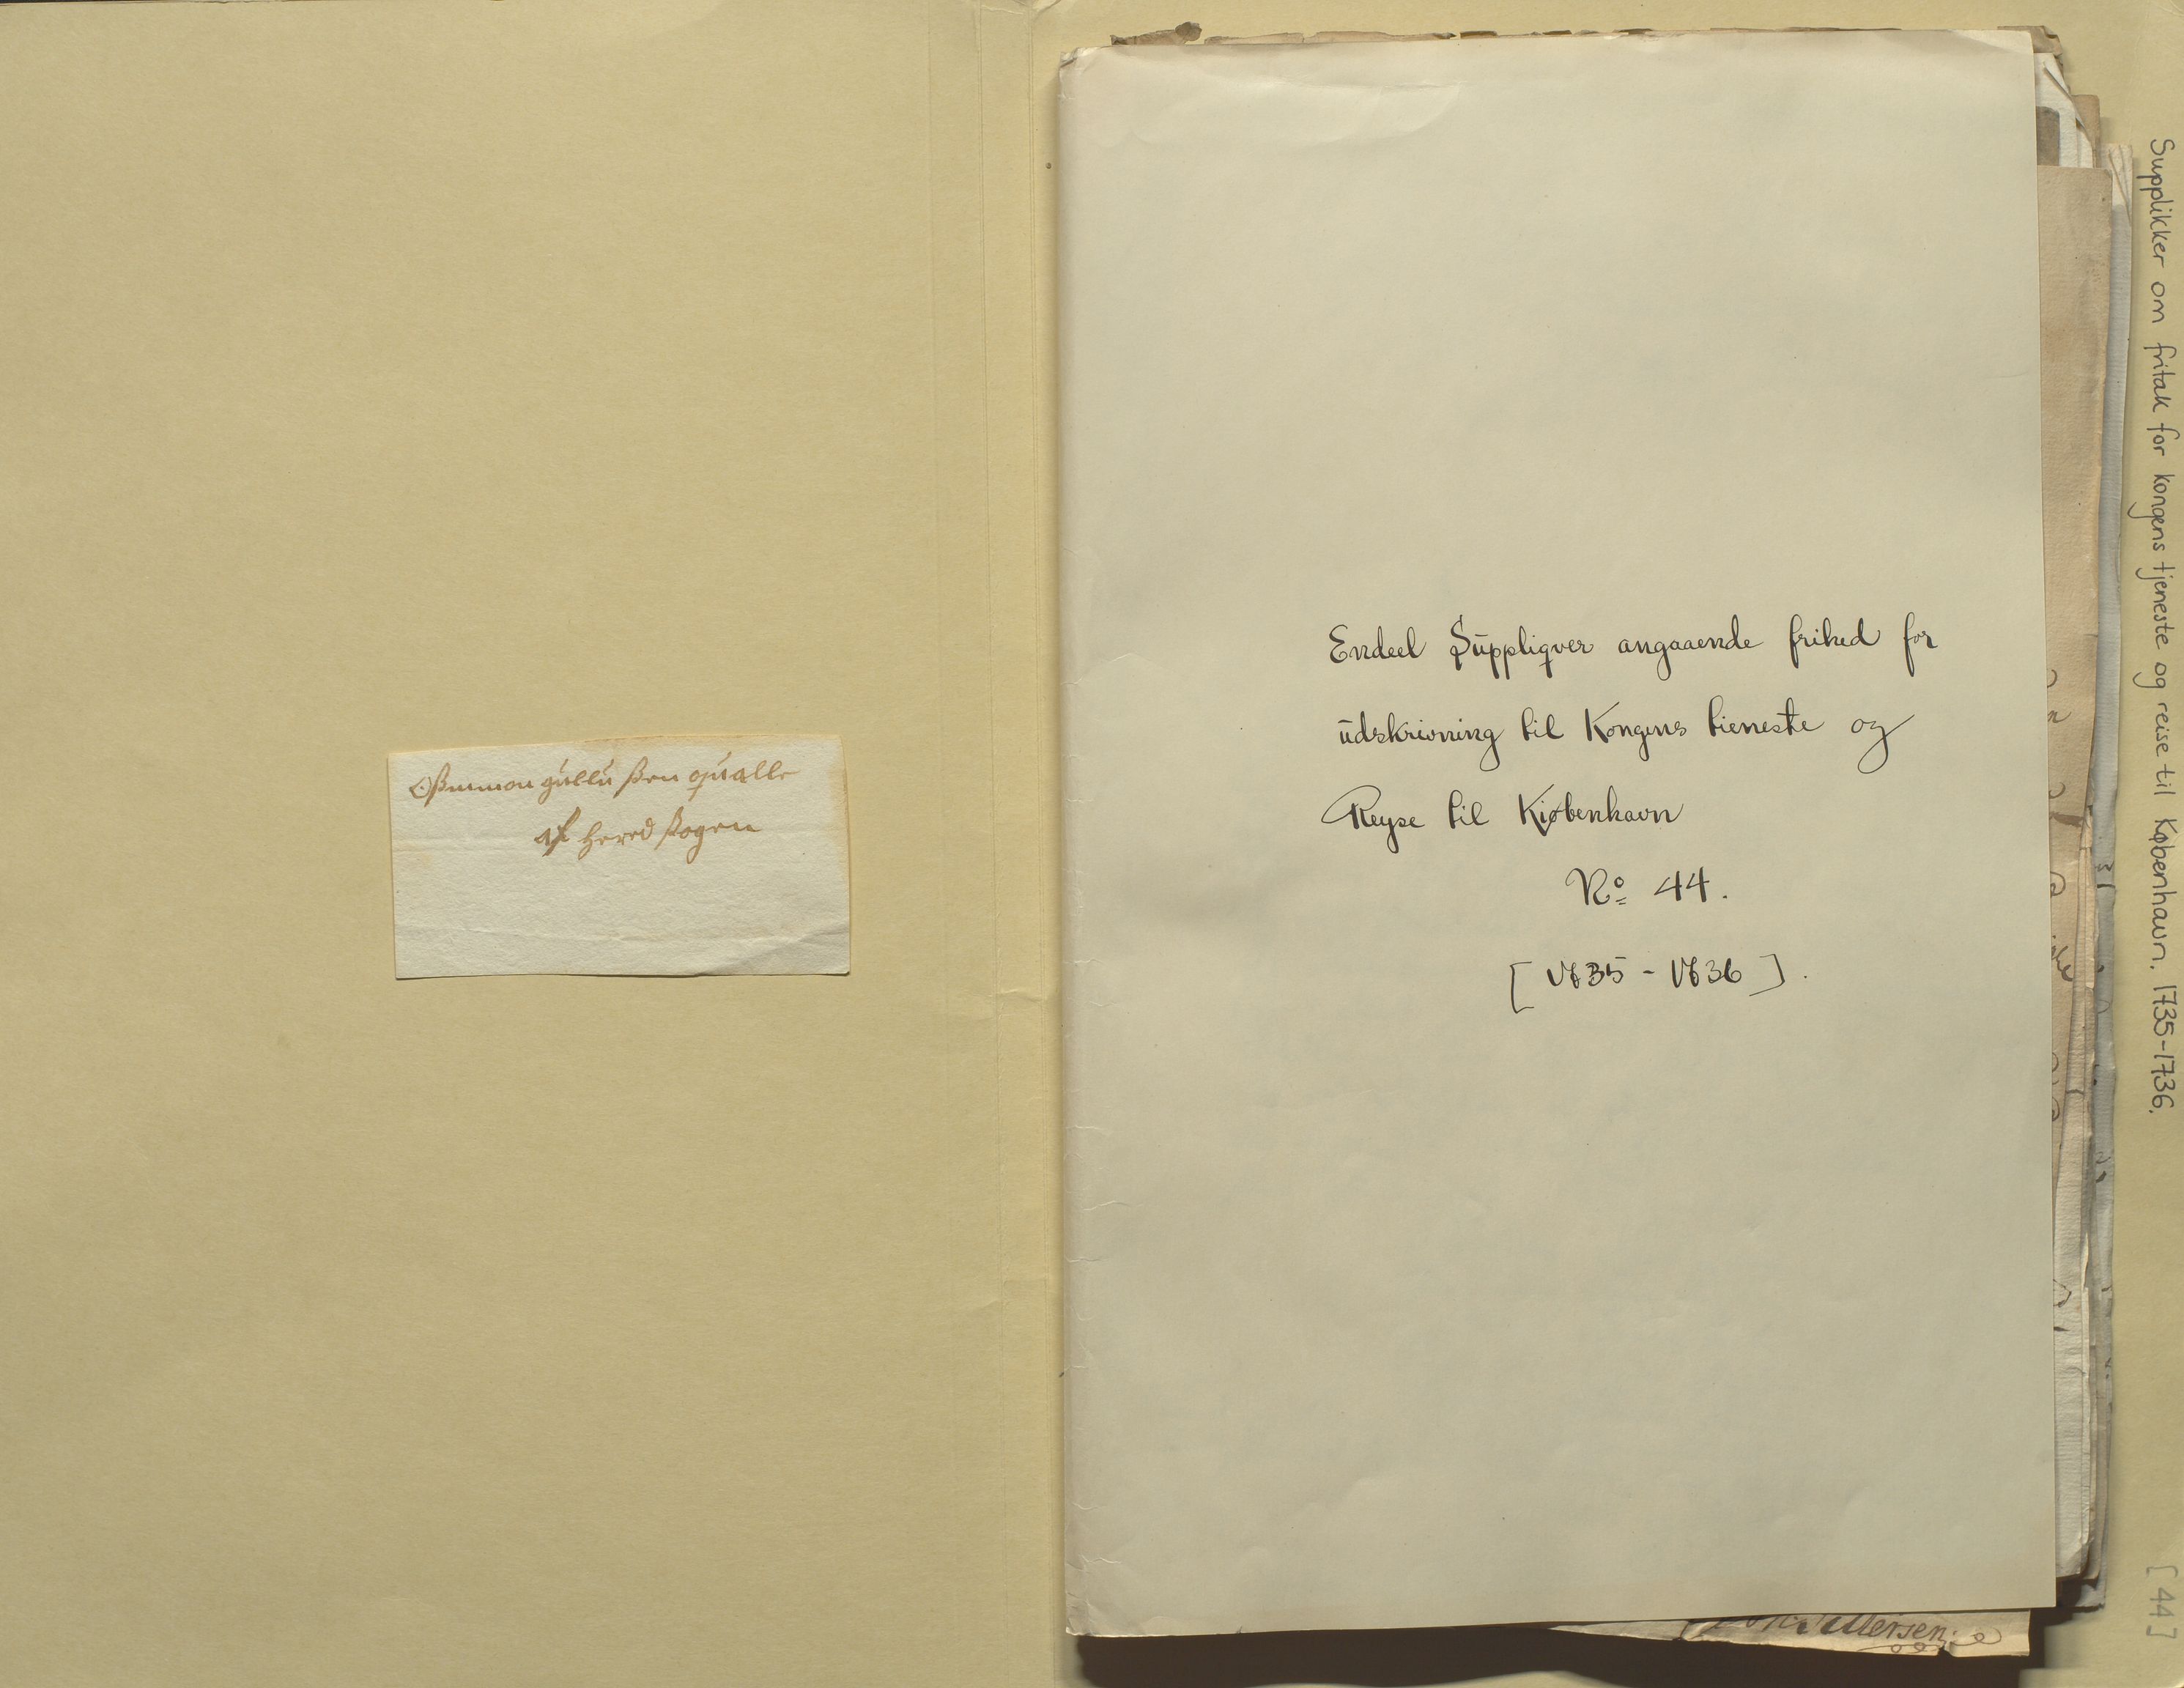 Oßmmon gúllú ßen qúalle
af Herred ßogen
Endeel Sūppliqver angaaende frihed for
ūdskrivning til Kongens tieneste og
Reyse til Kiøbenhavn
No 44.
[1735 - 1736].
Supplikker om fritak for kongens tjeneste og reise til København. 1735-1736.
[44]